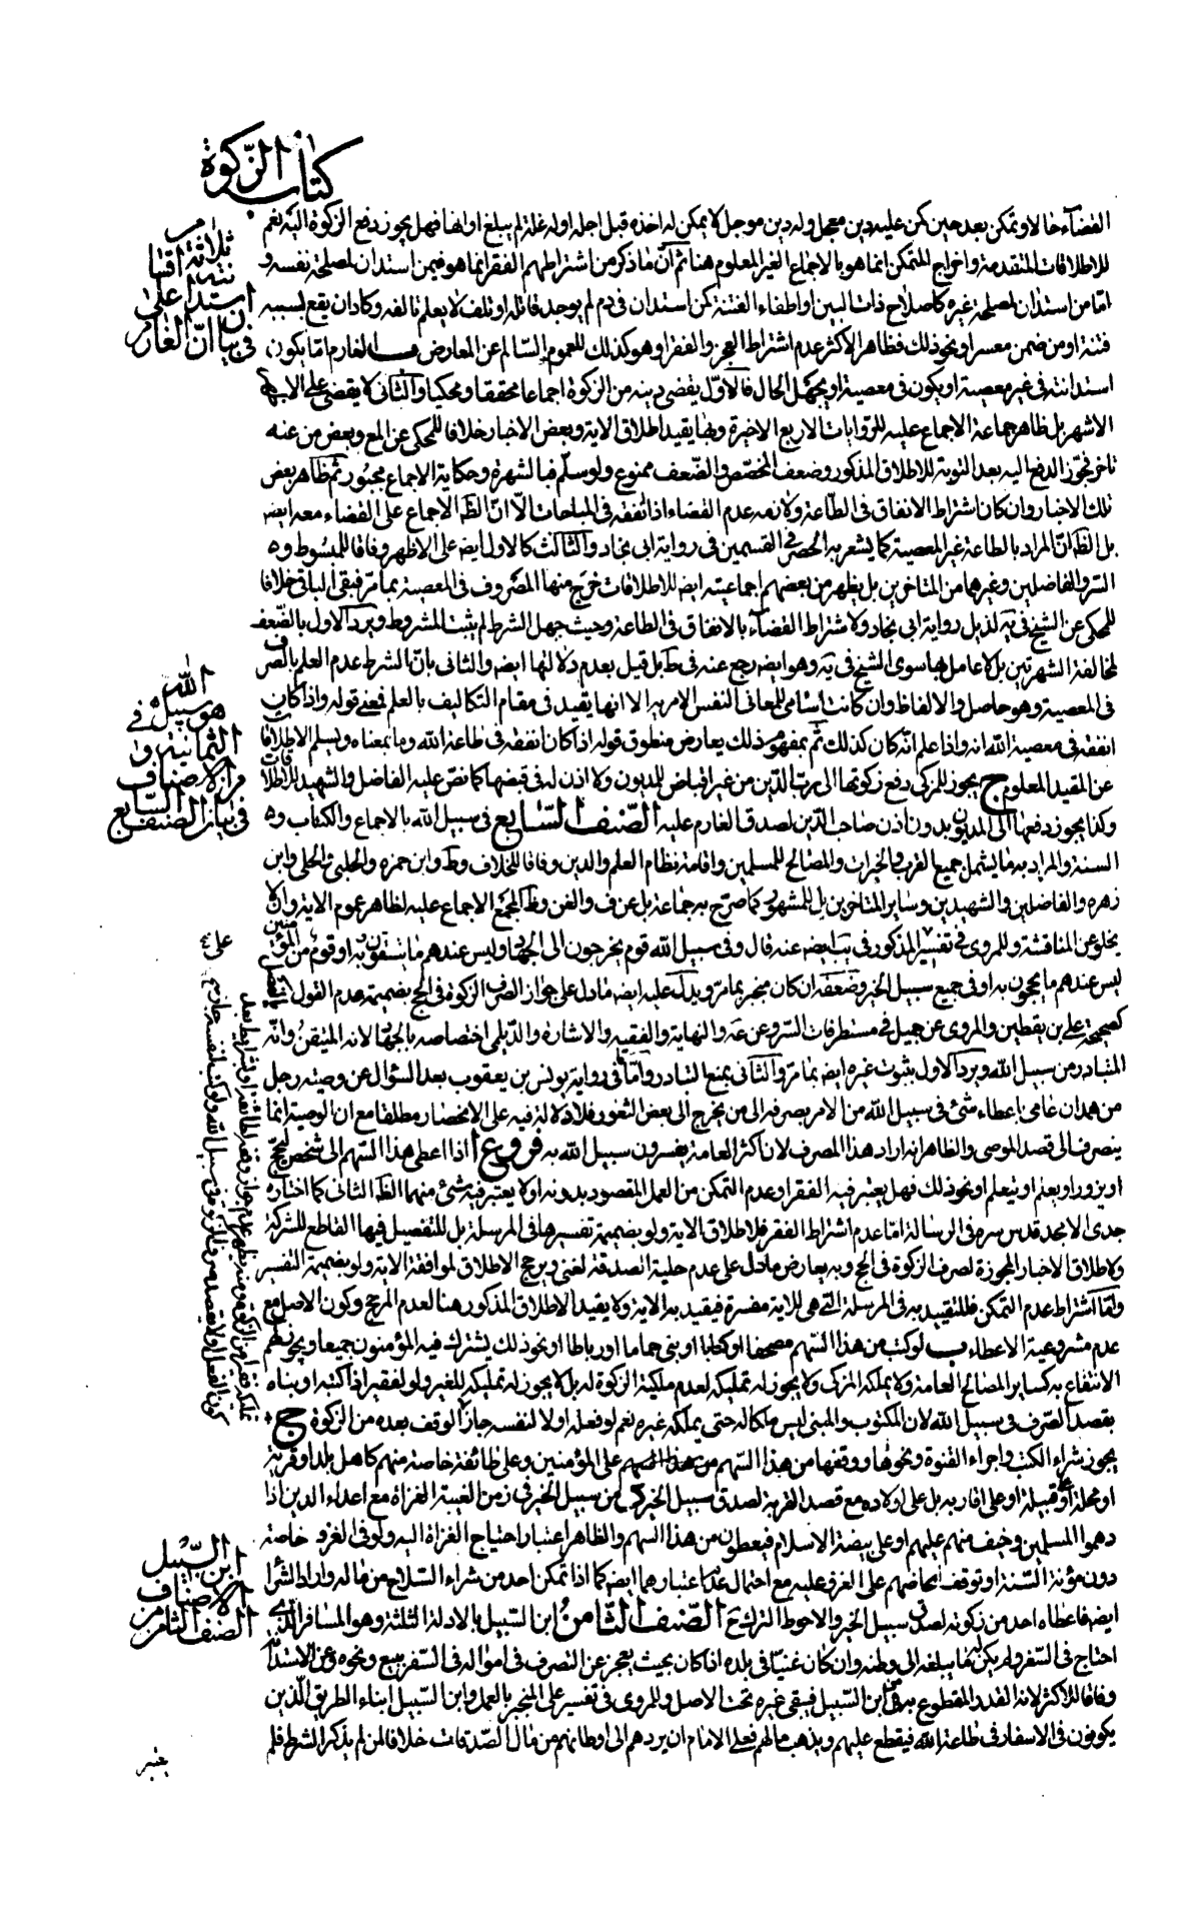 كتاب الزكوة
القضاء حالا وتمكن بعد حين كمن عليه دين معجل وله دين موجل لا يمكن له اخذه قبل اجله او له غلة لم يبلغ اوانها فهل يجوز دفع الزكوة اليه نعم
للاطلاقات المتقدمة واخراج المتمكن انما هو بالاجماع الغير المعلوم هنا ثم ان ما ذكر من اشتراطهم الفقر انما هو فيمن استدان لمصلحة نفسه و
اما من استدان لمصلحة غيره كاصلاح ذات البين او اطفاء الفتنة كمن استدان فى دم لم يوجد قاتله او تلف لا يعلم تالفه وكاد ان يقع بسببه
فتنة او من ضمن معسرا ونحو ذلك فظاهر الاكثر عدم اشتراط العجز والفقر وهو كذلك للعموم السالم عن المعارض ب الغارم اما يكون
استدانته فى غير معصية او يكون فى معصية او يجهل الحال فالاول يقضى دينه من الزكوة اجماعا محققا ومحكيا والثانى لا يقضى على
الاشهر بل ظاهر جماعة الاجماع عليه للروايات الاربع الاخيرة وبها يقيد اطلاق الاية وبعض الاخبار خلافا للمحكى عن المع وبعض من عنه
تاخر فجوز الدفع اليه بعد التوبة للاطلاق المذكور وضعف المخصص والضعف ممنوع ولو سلم فبالشهرة وحكاية الاجماع مجبور ثم ظاهر بعض
تلك الاخبار وان كان اشتراط الانفاق فى الطاعة ولازمه عدم القضاء اذا انفقه فى المباحات الا ان الظ الاجماع على القضاء معه ايضه
بل الظ ان المراد بالطاعة غير المعصية كما يشعر به الحصر فى القسمين فى رواية ابى نجاد والثالث كالاول ايضه على الاظهر وفاقا للمبسوط و
السر والفاضلين وغيرهما من المتاخرين بل يظهر من بعضهم اجماعيته ايضه للاطلاقات خرج منها المصروف فى المعصية بما مر فيبقى الباقى خلافا
للمحكى عن الشيخ فى يه لذيل رواية ابى نجاد ولاشتراط القضاء بالانفاق فى الطاعة وحيث جهل الشرط لم يثبت المشروط ويرد الاول بالضعف
لمخالفة الشهرتين بل لا عامل بها سوى الشيخ فى يه وهو ايضه رجع عنه فى ط بل قيل بعدم دلالتها ايضه والثانى بان الشرط عدم العلم بالصرف
فى المعصية وهو حاصل والالفاظ وان كانت اسامى للمعانى النفس الامرية الا انها يقيد فى مقام التكاليف بالعلم فمعنى قوله واذا كان
انفقه فى معصية الله انه واذا علم انه كان كذلك ثم بمفهومه ذلك يعارض منطوق قوله اذا كان انفقه فى طاعة الله وما بمعناه ويسلم الاطلاقات
عن المقيد المعلوم ج يجوز للمزكى دفع زكوتها الى رب الدين من غير اقباض للمديون ولا اذن له فى قبضها كما نص عليه الفاضل والشهيد للاطلاقات
وكذا يجوز دفعها الى المديون بدون اذن صاحب الدين لصدق الغارم عليه الصنف السابع فى سبيل الله بالاجماع والكتاب و
السنة والمراد به ما يشمل جميع القرب والخيرات والمصالح للمسلمين واقامة نظام العلم والدين وفاقا للخلاف وط وابن حمزه والحلبى والحلى وابن
زهره والفاضلين والشهيدين وساير المتاخرين بل للمشهور كما صرح به جماعة بل عن ف والغن وظ المجمع الاجماع عليه لظاهر عموم الاية وان لا
يخلو عن المناقشة وللمروى فى تفسير المذكور فى يب ايضه عنه قال وفى سبيل الله قوم يخرجون الى الجهاد وليس عندهم ما يتقوون به او قوم من المؤمنين
ليس عندهم ما يحجون به او فى جميع سبيل الخير وضعفه ان كان منجبر بما مر ويدل عليه ايضه ما دل على جواز الصرف الزكوة فى الحج بضميمة عدم القول بالفصل
كصحيحة على بن يقطين والمروى عن جميل فى مستطرفات السرو عن عه والنهاية والفقيه والاشارة والديلمى اختصاصه بالجهاد لانه المتيقن وانه
المتبادر من سبيل الله ويرد الاول بثبوت غيره ايضه بما مر والثانى بمنع التبادر واما فى رواية يونس بن يعقوب بعد السؤال عن وصية رجل
من همدان غامى باعطاء شئ فى سبيل الله من الامر بصرفه الى من يخرج الى بعض الثغور فلا دلالة فيه على الانحصار مطلقا مع ان الوصية انما
ينصرف الى قصد الموصى والظاهر انه اراد هذا المصرف لان اكثر العامة يفسرون سبيل الله به فروع ا اذا اعطى هذا السهم الى شخص ليحج
او يزور او يعلم او يتعلم او نحو ذلك فهل يعتبر فيه الفقر او عدم التمكن من العمل المقصود بدونه او لا يعتبر فيه شئ منهما الظ الثانى كما اختاره
جدى الامجد قدس سره فى الرسالة اما عدم اشتراط الفقر فلاطلاق الاية ولو بضميمة تفسيرها فى المرسلة بل للتفصيل فيها القاطع للشركة
ولاطلاق الاخبار المجوزة لصرف الزكوة فى الحج وبه يعارض ما دل على عدم حلية الصدقة لغنى ويرجح الاطلاق لموافقة الاية ولو بضميمة التفسير
واما اشتراط عدم التمكن فللتقييد به فى المرسلة التى هى للاية مفسرة فيقيد به الاية ولا يقيد الاطلاق المذكور هنا لعدم المرجح وكون الاصل مع
عدم مشروعية الاعطاء ب لو كتب من هذا السهم مصحفا او كتابا او بنى حماما او رباطا او نحو ذلك يشترك فيه المؤمنون جميعا ويجوز لهم
الانتفاع به كساير المصالح العامة ولا يملكه المزكى ولا يجوز له تملكه لعدم ملكية الزكوة له بل لا يجوز له تمليكه للغير ولو لفقير اذا كتبه او بناه
بقصد الصرف فى سبيل الله لان المكتوب والمبنى ليس ماكاله حتى يملكه غيره نعم لو فعله اولا لنفسه جاز الوقف بعده من الزكوة ج
يجوز شراء الكتب واجراء القنوة ونحوها ووقفها من هذا السهم على المؤمنين وعلى طائفة خاصة منهم كاهل بلد او قرية
او محلة او قبيلة او على اقاربه بل على اولاده مع قصد القربة لصدق سبيل الخير د من سبيل الخير فى زمن الغيبة الغزاة مع اعداء الدين اذا
دهموا المسلمين وخيف منهم عليهم او على بيضة الاسلام فيعطون من هذا السهم والظاهر اعتبار احتياج الغزاة اليه ولو فى الغزو خاصة
دون مؤنة السنة او توقف انهاضهم على الغزو عليه مع احتمال عدم اعتبارهما ايضه كما اذا تمكن احد من شراء السلاح من ماله واراد الشراء
ايضه فاعطاه احد من زكوته لصدق سبيل الخير والاحوط الترك ح الصنف الثامن ابن السبيل بالادلة الثلثة وهو المسافر الذى
احتاج فى السفر ولم يكن له ما يبلغه الى وطنه وان كان غنيا فى بلده اذا كان بحيث يعجز عن التصرف فى امواله فى السفر ببيع ونحوه وعن الاستدانة
وفاقا للاكثر لانه القدر المقطوع به فى ابن السبيل فيبقى غيره تحت الاصل والمروى فى تفسير على المنجبر بالعمل وابن السبيل ابناء الطريق الذين
يكونون فى الاسفار فى طاعة الله فيقطع عليهم ويذهب مالهم فعلى الامام ان يردهم الى اوطانهم من مال الصدقات خلافا لمن لم يذكر الشرط فلم
يعتبر
فى بيان ان الغارم
استدان على
ثلاثة اقسام
فى بيان الصنف السابع
من الاصناف
الثمانية و
هو سبيل
الله
الصنف الثامن
الاصناف
ابن السبيل